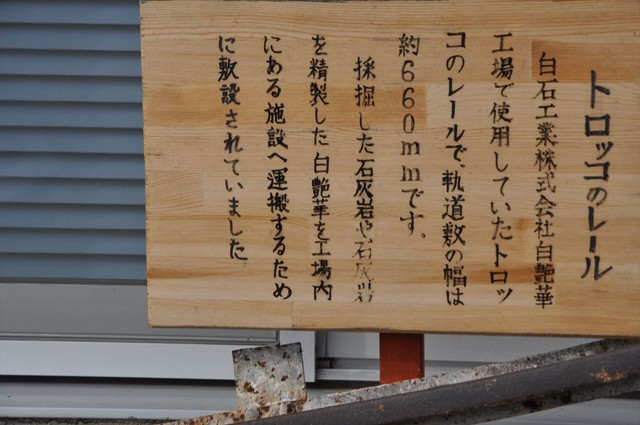 トロッコのレール
白石工業株式会社白艶華
工場で使用していたトロッ
コのレールで、軌道敷の幅は
約660mmです。
採掘した石灰岩や石灰岩
を精製した白艶華を工場内
にある施設へ運搬するため
に敷設されていました。